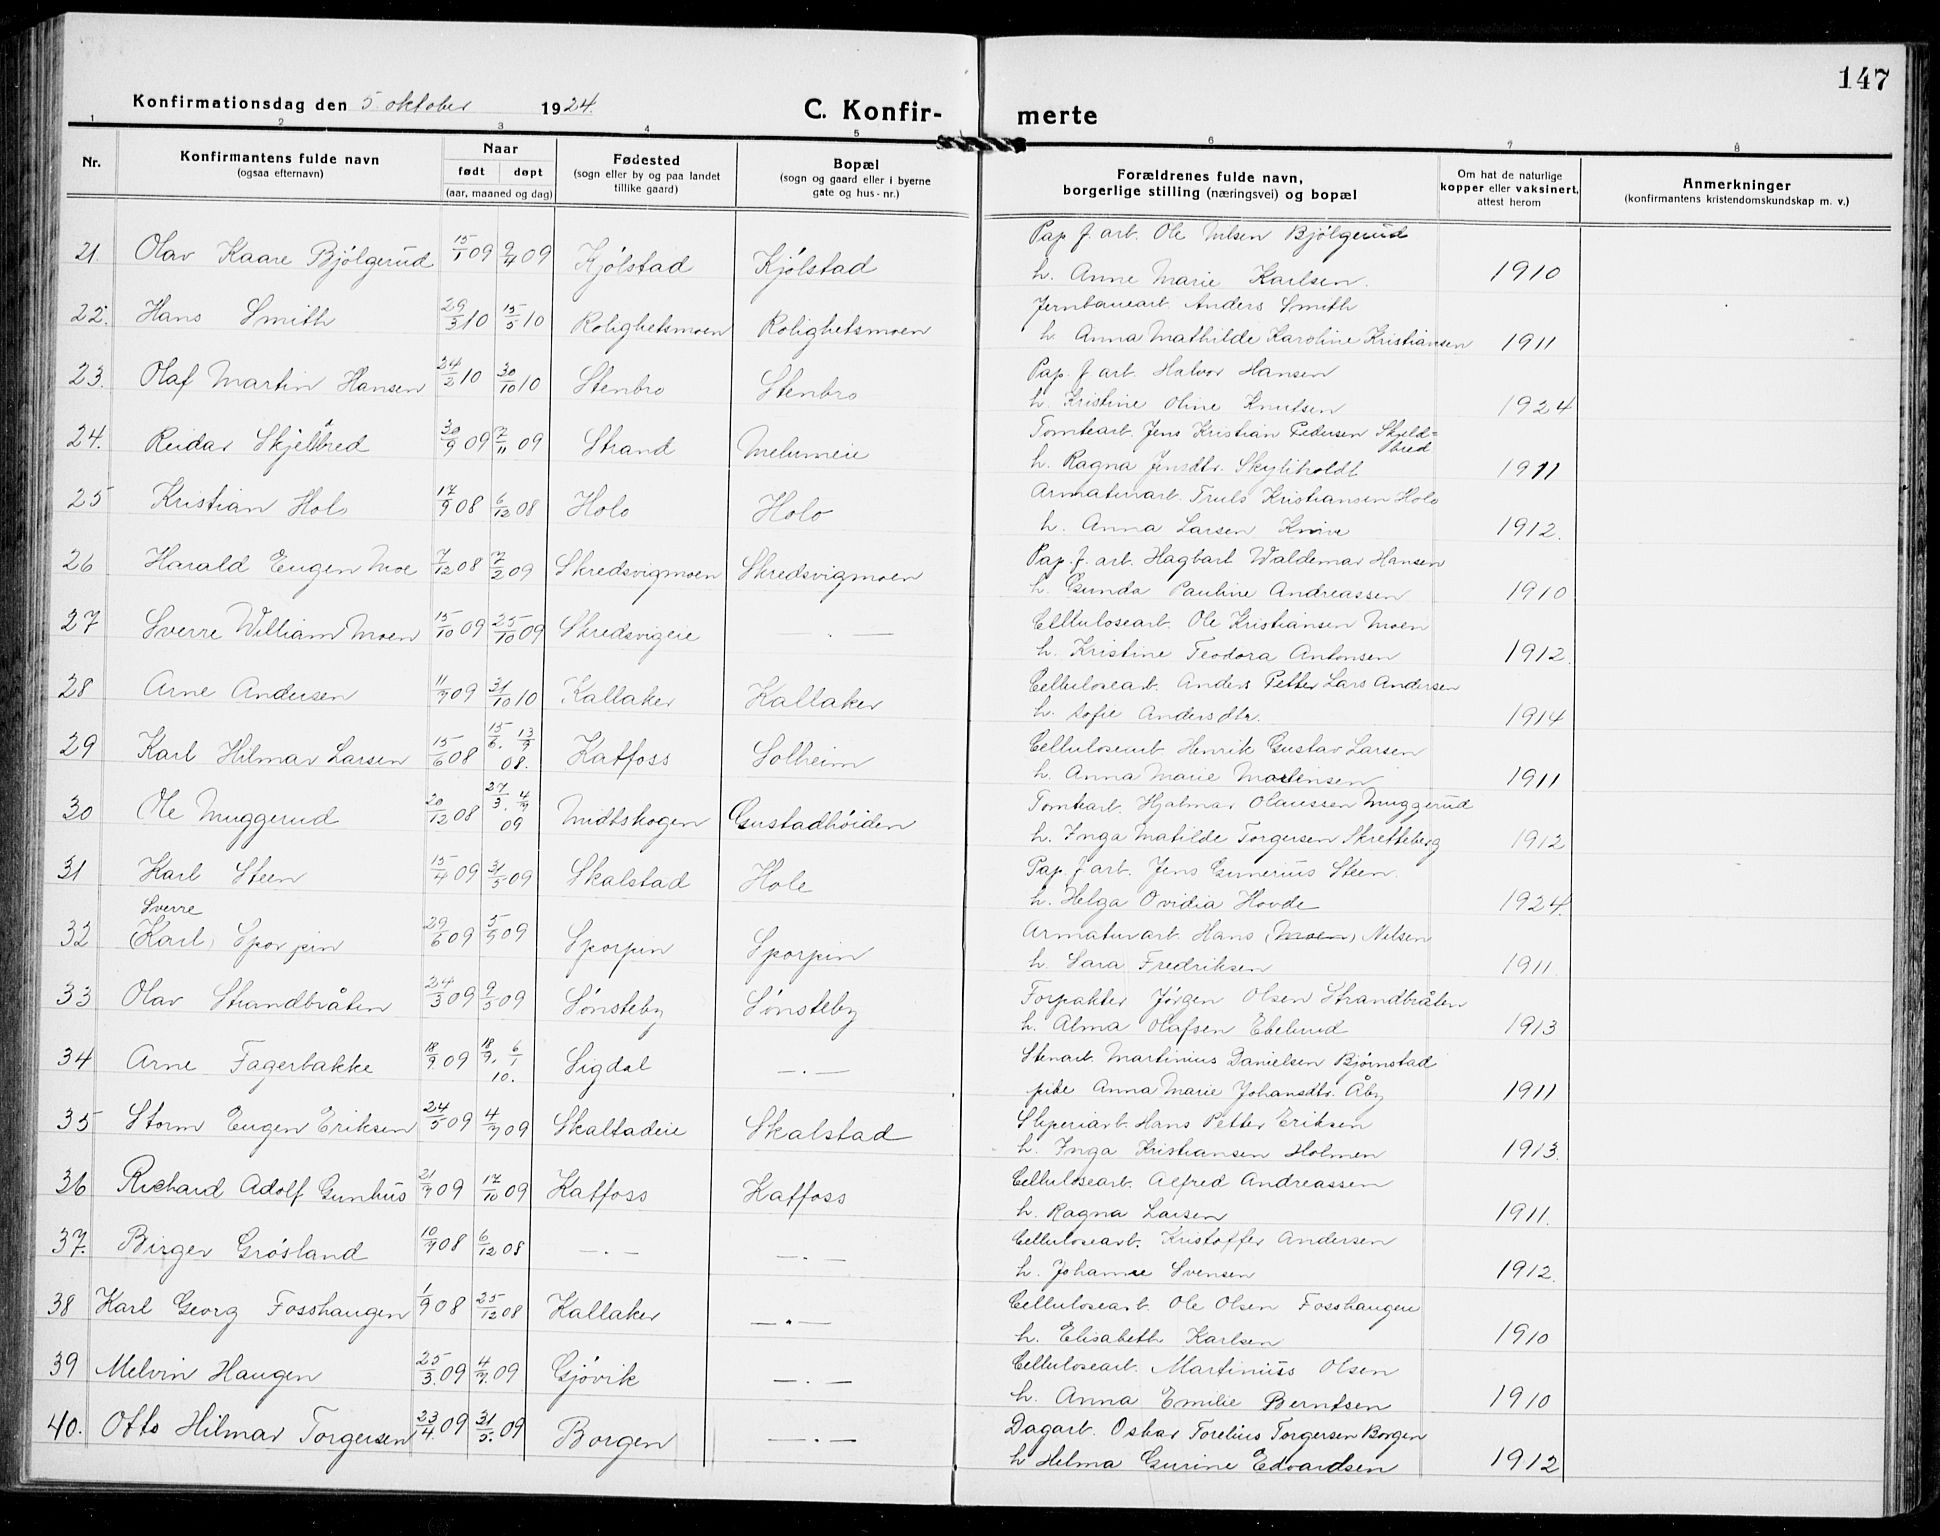 147
Konfirmationsdag den 5. oktober 1924.
C. Konfir- merte
1 2 3 4 5 6 7 8
Nr. Konfirmantens fulde navn (ogsaa efternavn) Naar født døpt (aar, maaned og dag) Fødested (sogn eller by og paa landet tillike gaard) Bopæl (sogn og gaard eller i byerne gate og hus-nr.) Forældrenes fulde navn, borgerlige stilling (næringsvei) og bopæl Om hat de naturlige kopper eller vaksinert, attest herom Anmerkninger (konfirmantens kristendomskundskap m. v.)
21. Olav Kaare Bjølgerud 15/1 09 9/4 09 Kjølstad Kjølstad Pap. f. arb. Ole Nilsen Bjølgerud
h. Anne Marie Karlsen. 1910
22. Hans Smith 29/3 10 15/5 10 Rolighetsmoen Rolighetsmoen Jernbanearb. Anders Smith
h. Anna Mathilde Karoline Kristiansen 1911
23. Olaf Martin Hansen 24/2 10 30/10 10 Stenbro Stenbro Pap. f. arb. Halvor Hansen
h. Kristine Oline Knutsen 1924
24. Reidar Skjelbred 30/9 09 7/11 09 Strand Melumeie Tomtearb. Jens Kristian Pedersen Skjeld=
bred
h. Ragna Jensdtr. 1911
25 Kristian Holo 17/9 08 6/12 08 Holo Holo Armaturarb. Truls Kristiansen Holo
h. Anna Larsen 1912.
26 Harald Eugen Moe 7/12 08 7/2 09 Skredsvigmoen Skredsvigmoen Pap. f. arb. Hagbart Waldemar Hansen
h. Gunda Pauline Andreassen 1910
27 Sverre William Moen 15/10 09 25/10 09 Skredsvigeie — . — Cellulosearb. Ole Kristiansen Moen
h. Kristine Teodora Antonsen 1912.
28 Arne Andersen 11/9 09 31/10 10 Kallaker Kallaker Cellulosearb. Anders Petter Lars Andersen
h. Sofie Andersdtr. 1914
29 Karl Hilmar Larsen 15/6 08 15/6. 13/9 08. Katfoss Solheim Cellulosearb. Henrik Gustav Larsen
h. Anna Marie Martinsen 1911
30 Ole Muggerud 20/12 08 27/3. 4/7 09 Midtskogen Gustadhøiden Tomtearb. Hjalmar Olaussen Muggerud
h. Inga Matilde Torgersen Skretteberg 1912
31 Karl Steen 15/4 09 31/5 09 Skalstad Hole Pap. f. arb. Jens Gunerius Steen.
h. Helga Ovidia Hovde 1924.
Sverre
32 (Karl) Sporpin 29/6 09 5/9 09 Sporpin Sporpin Armaturarb. Hans (Moen) Nilsen
h. Sara Fredriksen 1911.
33 Olav Strandbråten 24/3 09 9/5 09 Sønsteby Sønsteby Forpakter Jørgen Olsen Strandbråten
h. Alma Olafsen 1913
34 Arne Fagerbakke 18/9. 09 18/9. 6/1 10. Sigdal — . — Stenarb. Martinius Danielsen Bjørnstad
pike Anna Marie Johansdtr. Åby 1911
35 Storm Eugen Eriksen 24/5 09 4/7 09 Skaltadeie Skalstad Sliperiarb. Hans Petter Eriksen
h. Inga Kristiansen Holmen 1913.
36 Richard Adolf Gunhus 21/7 09 17/10 09 Katfoss Katfoss Cellulosearb. Alfred Andreassen
h. Ragna Larsen 1911.
37. Birger Grøsland 10/9 08 6/12 08 — . — — . — Cellulosearb. Kristoffer Andersen
h. Johanne Svensen 1912.
38 Karl Georg Fosshaugen 1/9 08 25/12 08 Kallaker — . — Cellulosearb. Ole Olsen Fosshaugen
h. Elisabeth Karlsen 1910
39 Melvin Haugen 25/3. 09 4/7. 09 Gjøvik — . — Cellulosearb. Martinius Olsen
h. Anna Emilie Berntsen 1910
40. Otto Hilmar Torgersen 23/4. 09 31/5. 09 Borgen — . — Dagarb. Oskar Torelius Torgersen Borgen
h Helma Gurine Edvardsen 1912